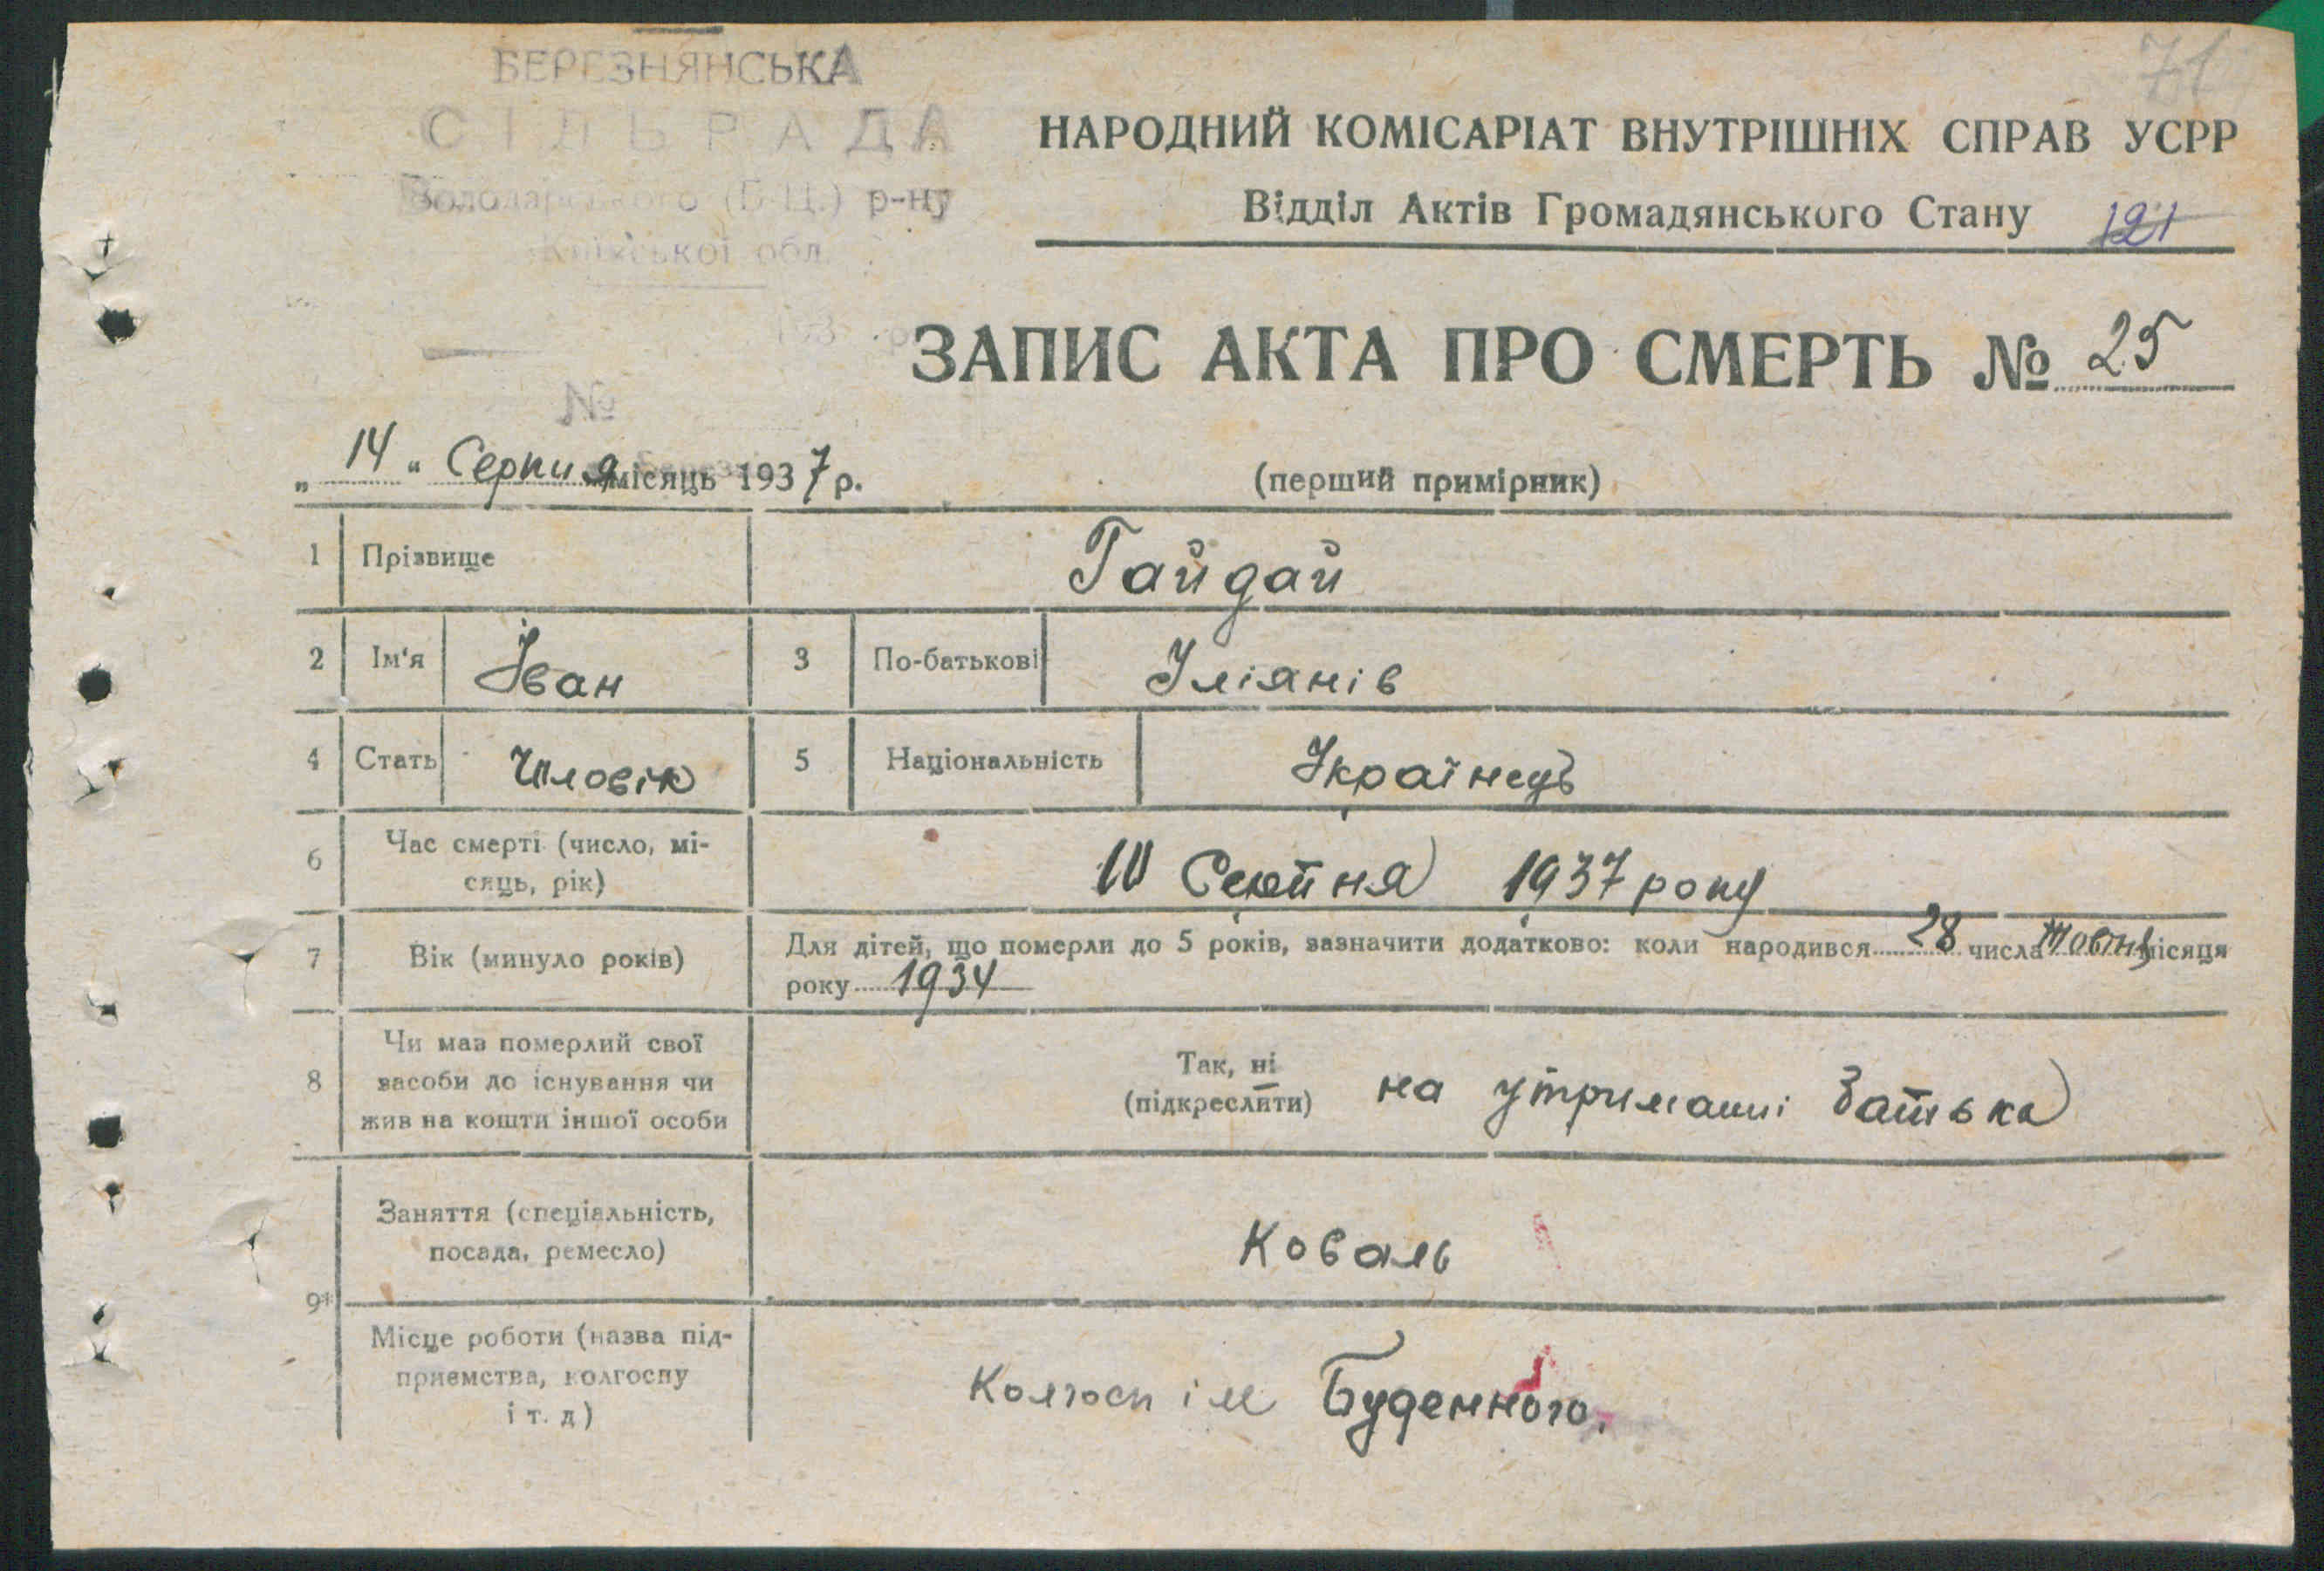 БЕРЕЗНЯНСЬКА
СІЛЬРАДА
Володарського (Б.Ц.) р-ну
Київської обл.
193 р
№
71
НАРОДНИЙ КОМІСАРІАТ ВНУТРІШНІХ СПРАВ УСРР
Відділ Актів Громадянського Стану 121
ЗАПИС АКТА ПРО СМЕРТЬ № 25
„ 14 " Серпня місяць 1937 р.
(перший примірник)
1 Прізвище Гайдай
2 Ім'я Іван 3 По-батькові Уліянів
4 Стать Чоловік 5 Національність Українець
6 Час смерті (число, мі-
сяць, рік)
10 1937 року
7 Вік (минуло років)
Для дітей, що померли до 5 років, зазначити додатково: коли народився 28 числа жовтня місяця
року 1934
8 Чи мав померлий свої
засоби до існування чи
жив на кошти іншої особи
Так, ні
(підкреслити)
на утриманні батька
9*
Заняття (спеціальність,
посада, ремесло)
Коваль
Місце роботи (назва під-
приємства, колгоспу
і т. д)
Колгосп ім Буденного.